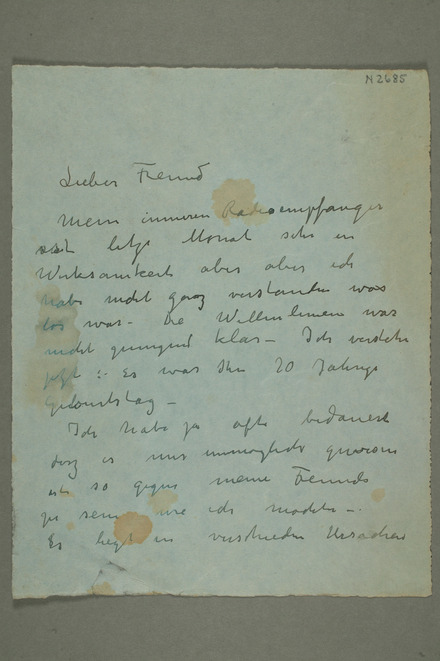 N 2685
Lieber Freund
Mein inneren Radioempfanger
letze Monat sehr in
Wirksamkeit aber aber ich
habe nicht ganz verstanden was
los war – Die Wellenlinien war
nicht genugend klar – Ich verstehe
jetzt :– Es war Ihr 70 Jahrige
Geburtstag –
Ich habe ja ofte bedauert
dasz es mir unmoglich
ist so gegen meine Freunds
zu sein wie ich mochte –.
Es liegt in verschieden Ursachen